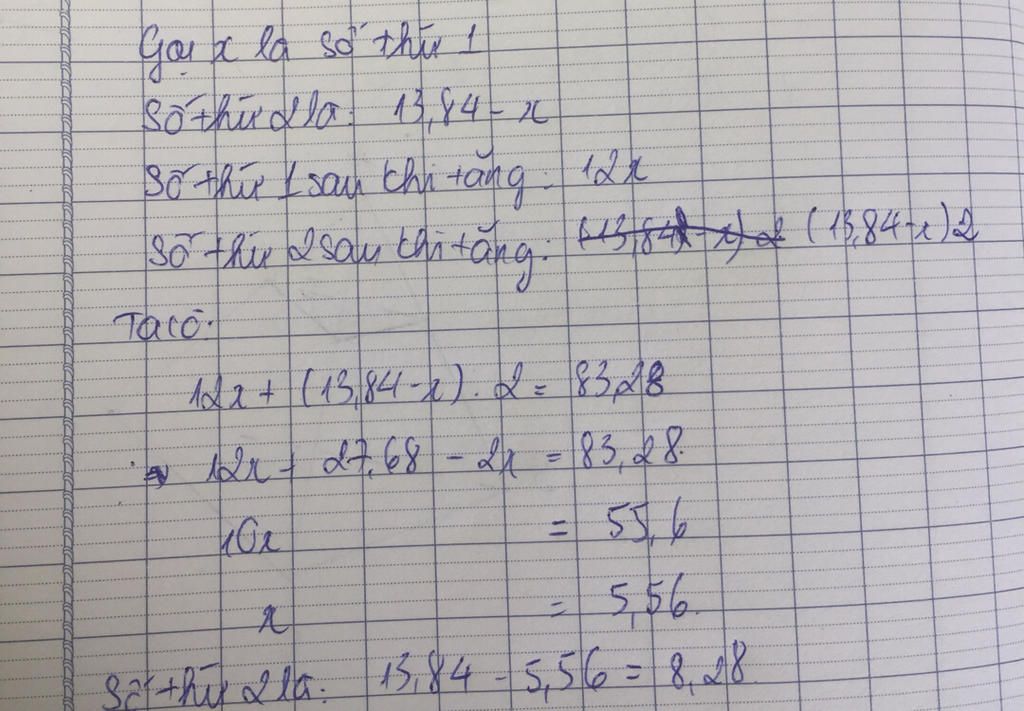 Gọi x là số thứ 1
Số thứ 2 là: 13,84 - x
Số thứ 1 sau khi tăng: 12x
Số thứ 2 sau khi tăng: (13,84 - x) 2 (13,84-x)2
Ta có:
12x + (13,84-x) . 2 = 83,28
12x + 27,68 - 2x = 83,28.
10x = 55,6
x = 5,56.
Số thứ 2 là: 13,84 - 5,56 = 8,28.